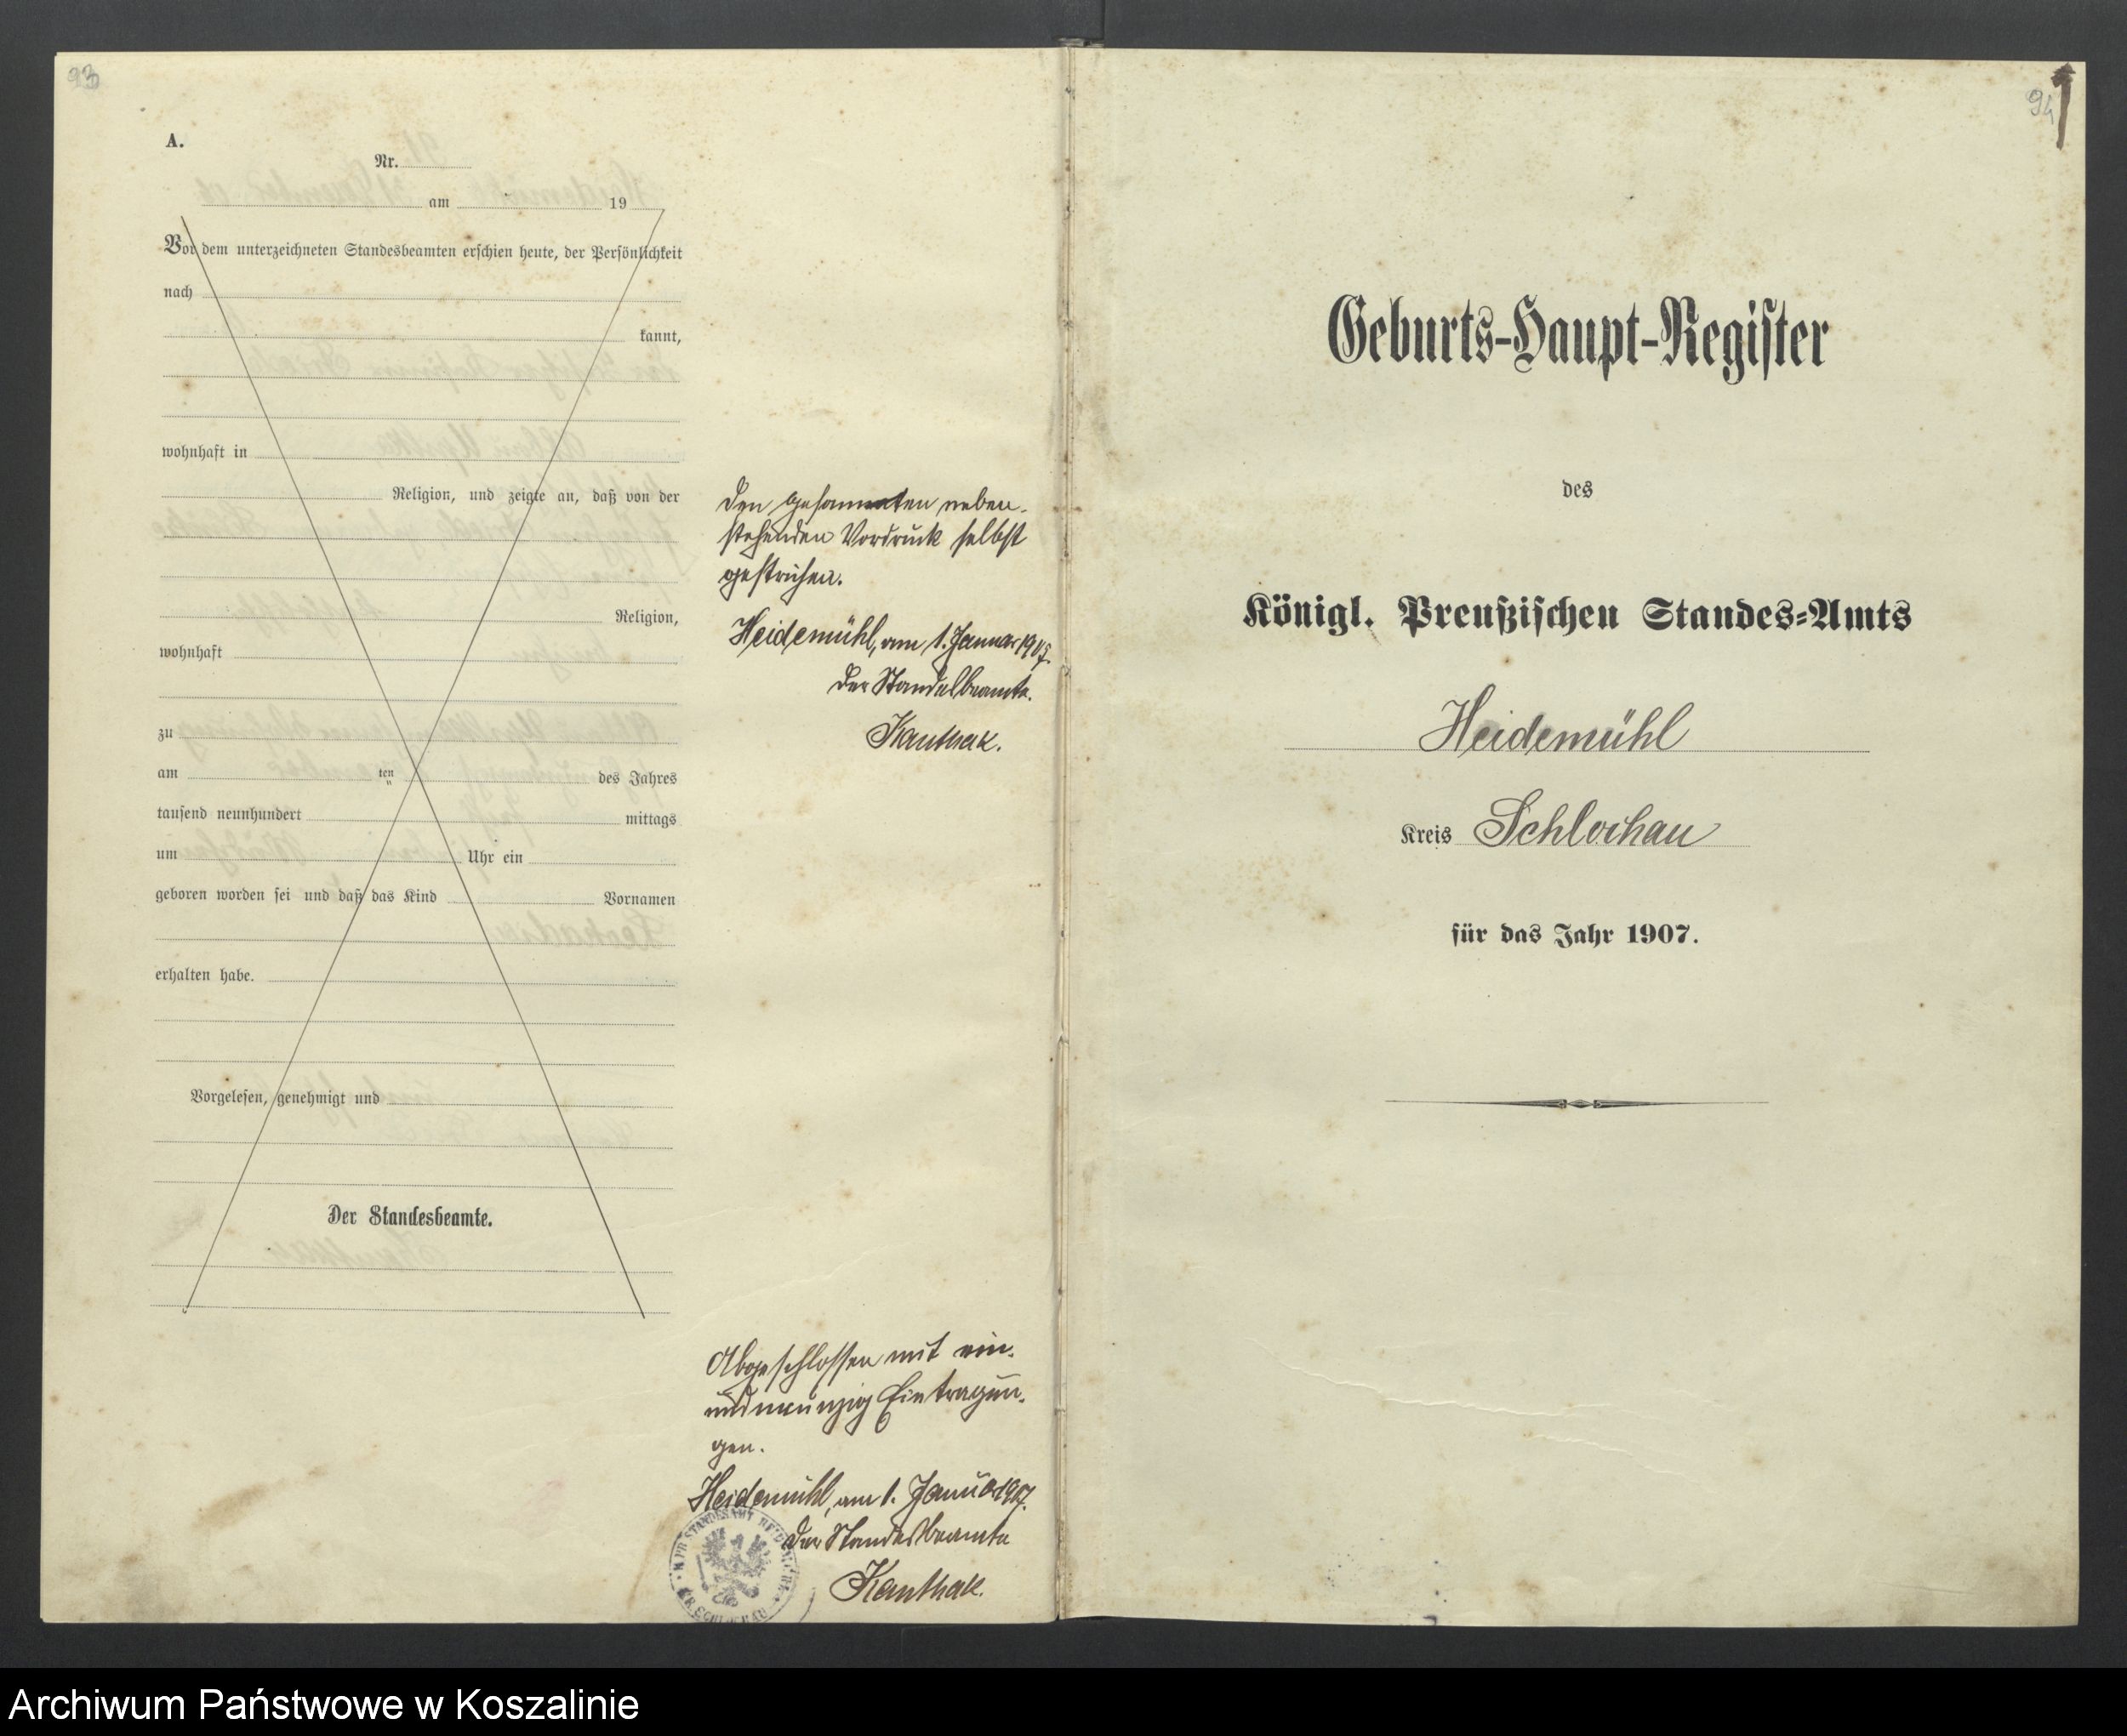 93
A.
Nr.
am 19
Vor dem unterzeichneten Standesbeamten erschien heute, der Persönlichkeit
nach
kannt,
wohnhaft in
Religion, und zeigte an, daß von der
Religion,
wohnhaft
zu
am ten des Jahres
tausend neunhundert mittags
um Uhr ein
geboren worden sei und daß das Kind Vornamen
erhalten habe.
Vorgelesen, genehmigt und
Der Standesbeamte.
Den gesammten neben-
stehenden Vordruck selbst
gestrichen.
Heidemühl, am 1. Januar 1907.
Der Standesbeamte.
Kanthak.
Abgeschlossen mit ein-
undneunzig Eintragun-
gen.
Heidemühl, am 1. Januar 1907.
Der Standesbeamte
Kanthak.
K. PR. STANDESAMT HEIDEMÜHL
KR. SCHLOCHAU
94
Geburts-Haupt-Register
des
Königl. Preußischen Standes-Amts
Heidemühl
Kreis Schlochau
für das Jahr 1907.
Archiwum Państwowe w Koszalinie